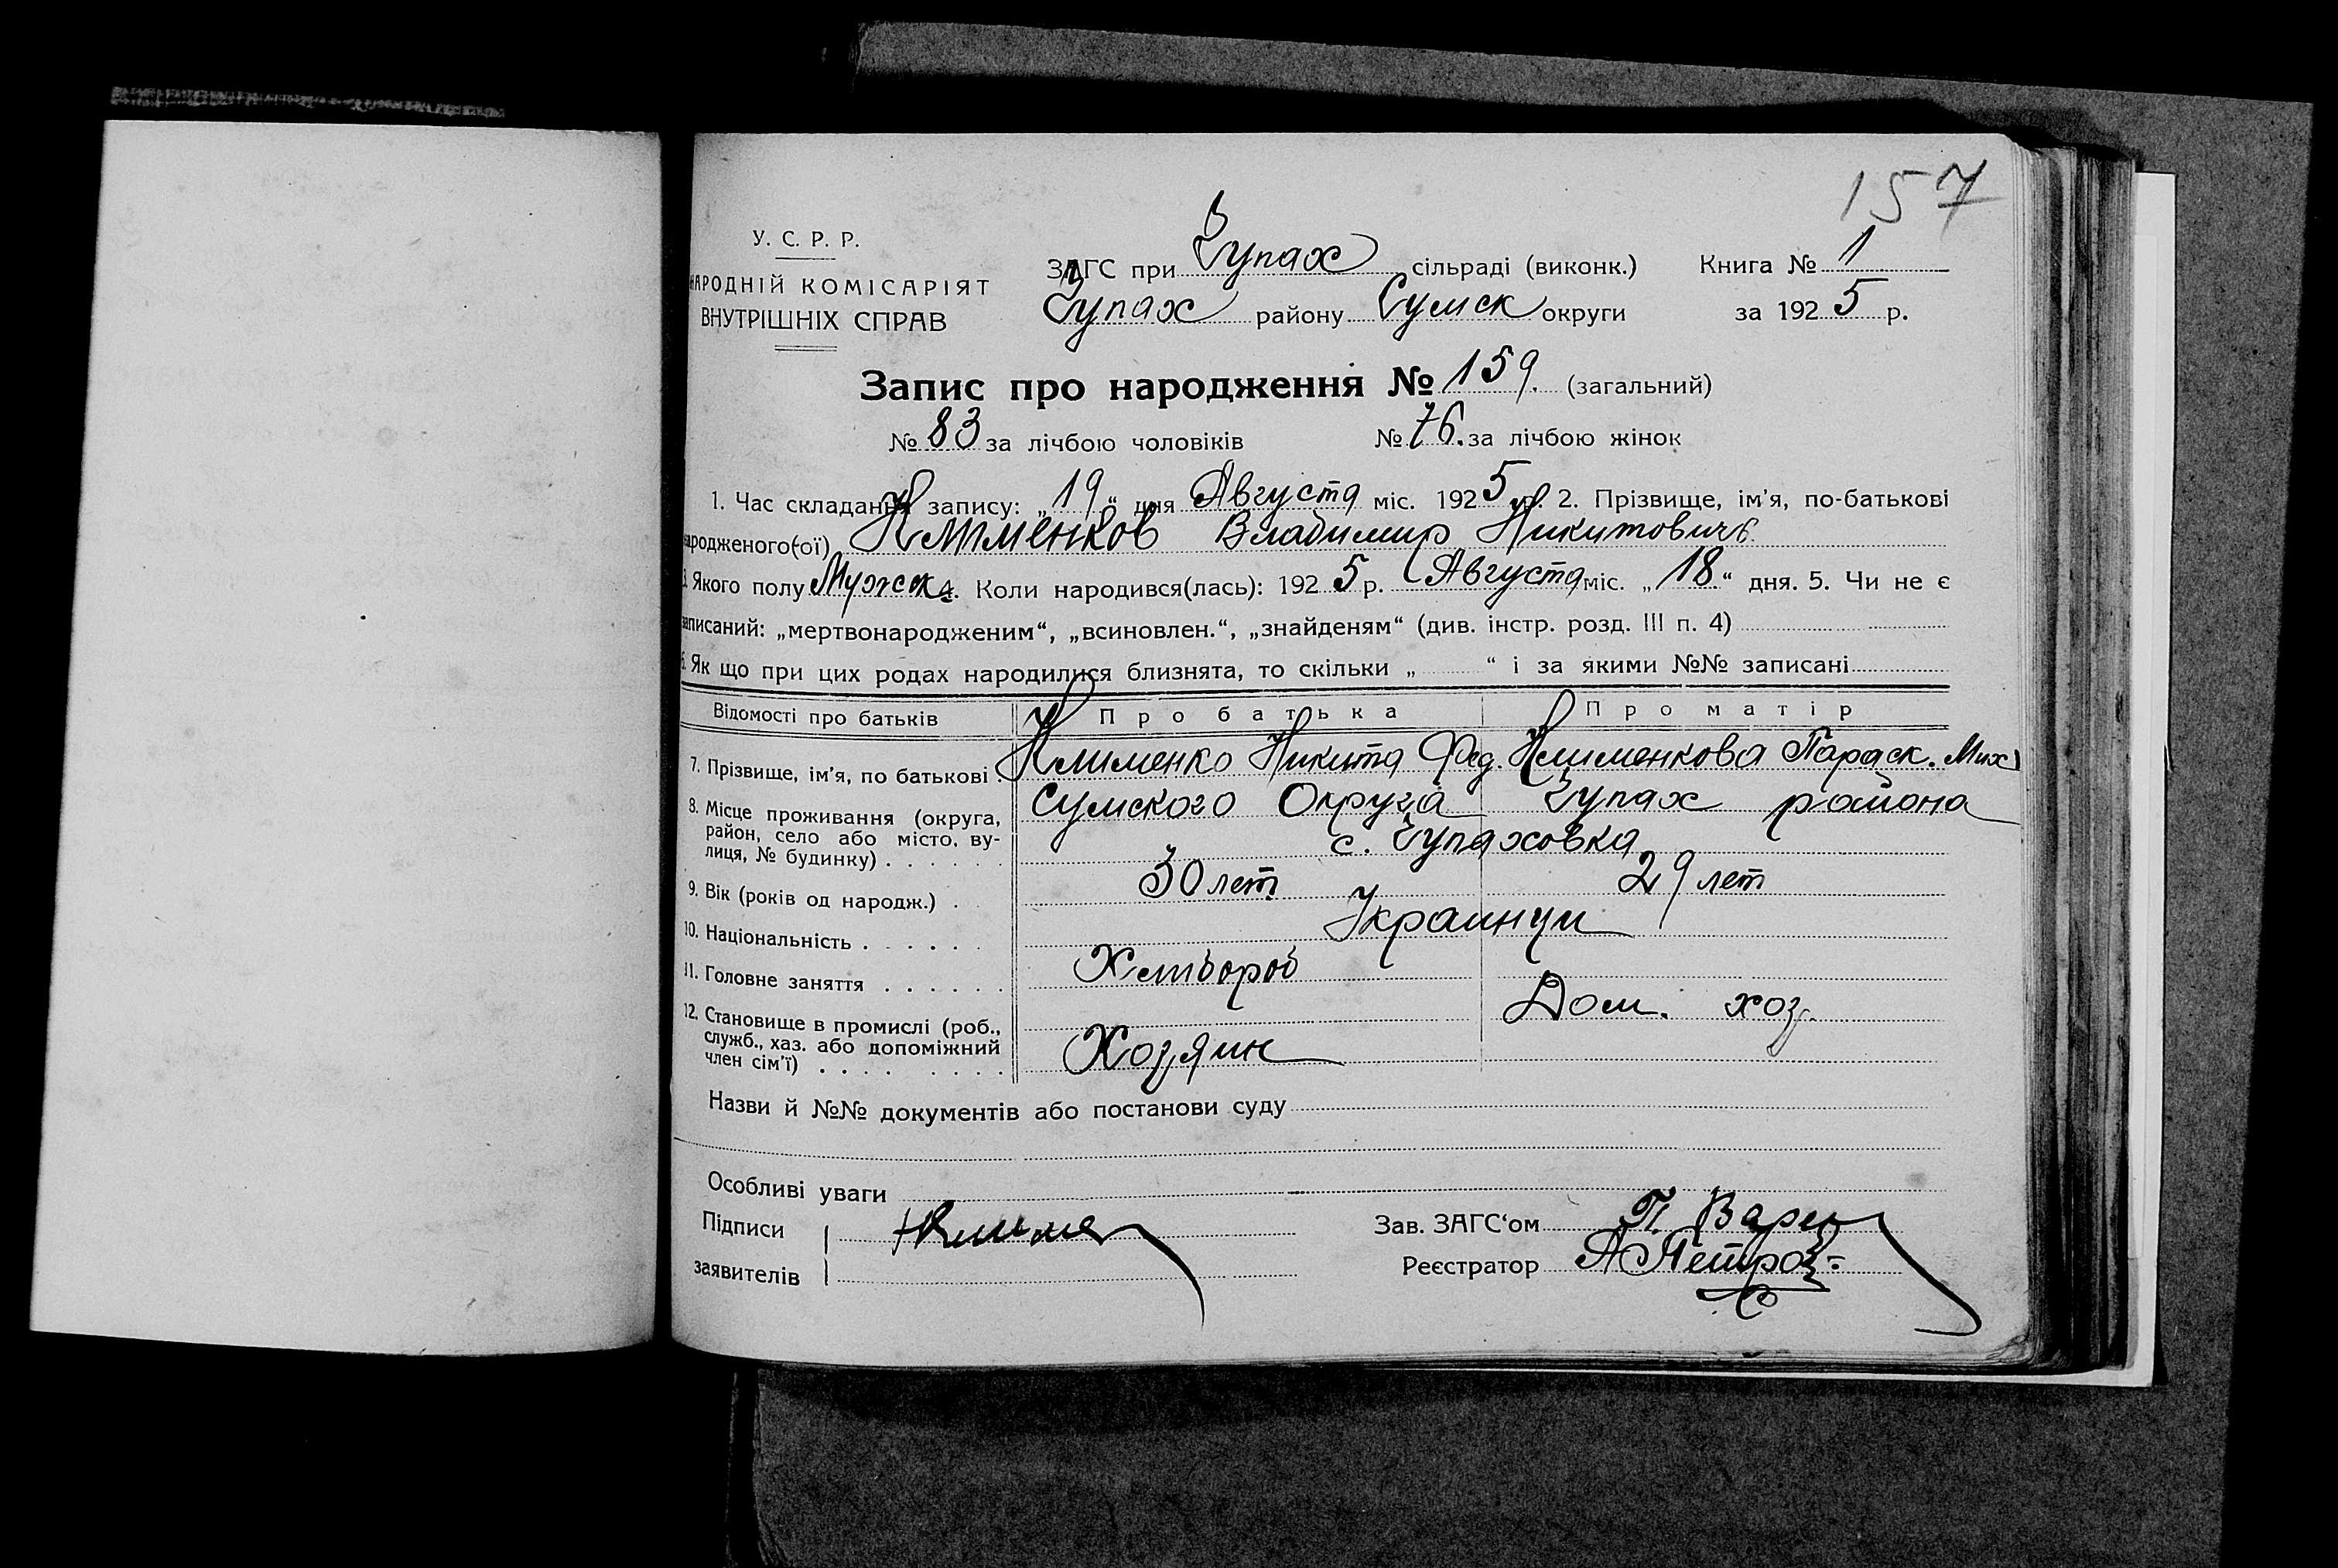 157
У. С. Р. Р.
НАРОДНІЙ КОМІСАРІЯТ
ВНУТРІШНІХ СПРАВ
ЗАГС при Чупах сільраді (виконк.)
Чупах району Сумск округи
Книга № 1
за 1925 р.
Запис про народження № 159. (загальний)
№ 83 за лічбою чоловіків № 76. за лічбою жінок
1. Час складання запису: „19“ дня Августа міс. 1925 р. 2. Прізвище, ім'я, по-батькові
народженого(-ої) Клименков Владимир Никитовичъ
3. Якого полу Мужск 4. Коли народився(лась): 1925 р. Августа міс. „18“ дня. 5. Чи не є
записаний: „мертвонародженим“, „всиновлен.“, „знайденям“ (див. інстр. розд. III п. 4)
6. Як що при цих родах народилися близнята, то скільки „ “ і за якими №№ записані
Відомості про батьків Про батька Про матір
7. Прізвище, ім'я, по батькові . Клименко Никита Фед. Клименкова Параск. Мих
8. Місце проживання (округа, Сумского Округа Чупах района
район, село або місто, ву-
лиця, № будинку) . . . . . . с. Чупаховка
9. Вік (років од народж.) . . 30 лет 29 лет
10. Національність . . . . . . Украинци
11. Головне заняття . . . . . . Хлібороб
12. Становище в промислі (роб., Дом. хоз.
служб., хаз. або допоміжний
член сім'ї) . . . . . . . . Хозяин
Назви й №№ документів або постанови суду
Особливі уваги
Підписи
заявителів
Зав. ЗАГС'ом П.
Реєстратор А